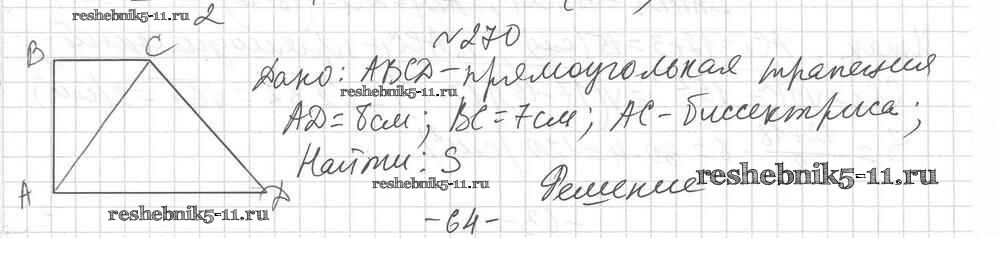 reshebnik5-11.ru 2
№270
B C Дано: ABCD - прямоугольная трапеция
reshebnik5-11.ru
AD = 8см; BC = 7см; AC - биссектриса;
Найти: S
reshebnik5-11.ru
A D Решение reshebnik5-11.ru
reshebnik5-11.ru
-64-